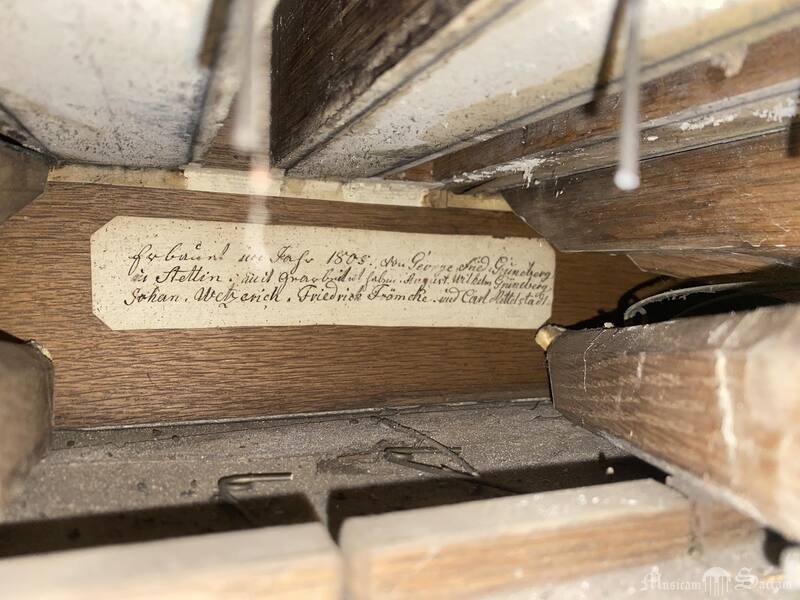 Erbauet im Jahr 1805. von George Fried. Grüneberg
zu Stettin. mit gearbeitet haben. August. Wilhelm Grüneberg
Johan. Wetzerich. Friedrich Frömcke. und Carl Mittelstädt.
Musicam Sacram